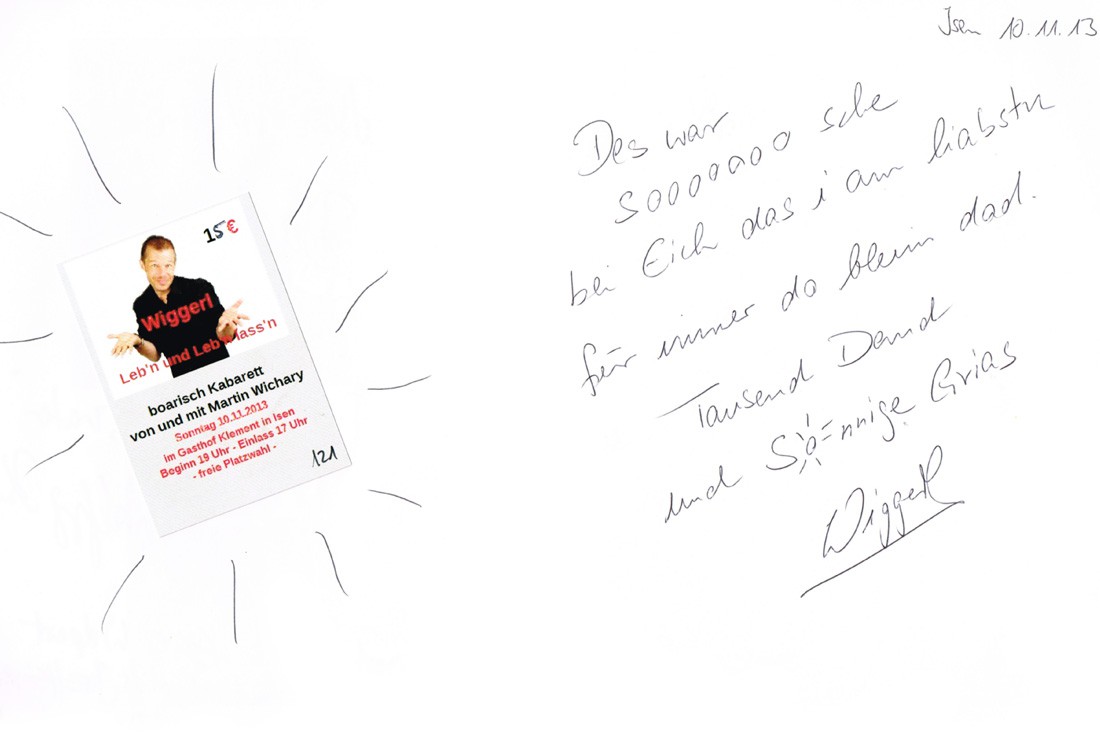 Isen 10.11.13
15€
Wiggerl
Leb'n und Leb'n lass'n
boarisch Kabarett
von und mit Martin Wichary
Sonntag 10.11.2013
im Gasthof Klement in Isen
Beginn 19 Uhr - Einlass 17 Uhr
- freie Platzwahl -
121
Des war
soooooooo sche
bei Eich das i am liabstn
für immer do bleim dad.
Tausend Dand
und Sonnige Grias
Wiggerl